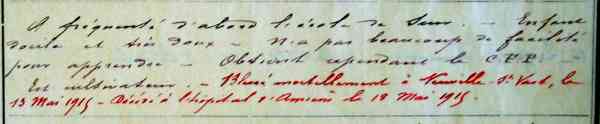 A fréquenté d'abord l'école de Sœur. — Enfant
docile et très doux — N'a pas beaucoup de facilité
pour apprendre — Obtient cependant le C.E.P. —
Est cultivateur — Blessé mortellement à Neuville-St Vast, le
13 Mai 1915 — Décédé à l'hôpital d'Amiens le 18 Mai 1915.